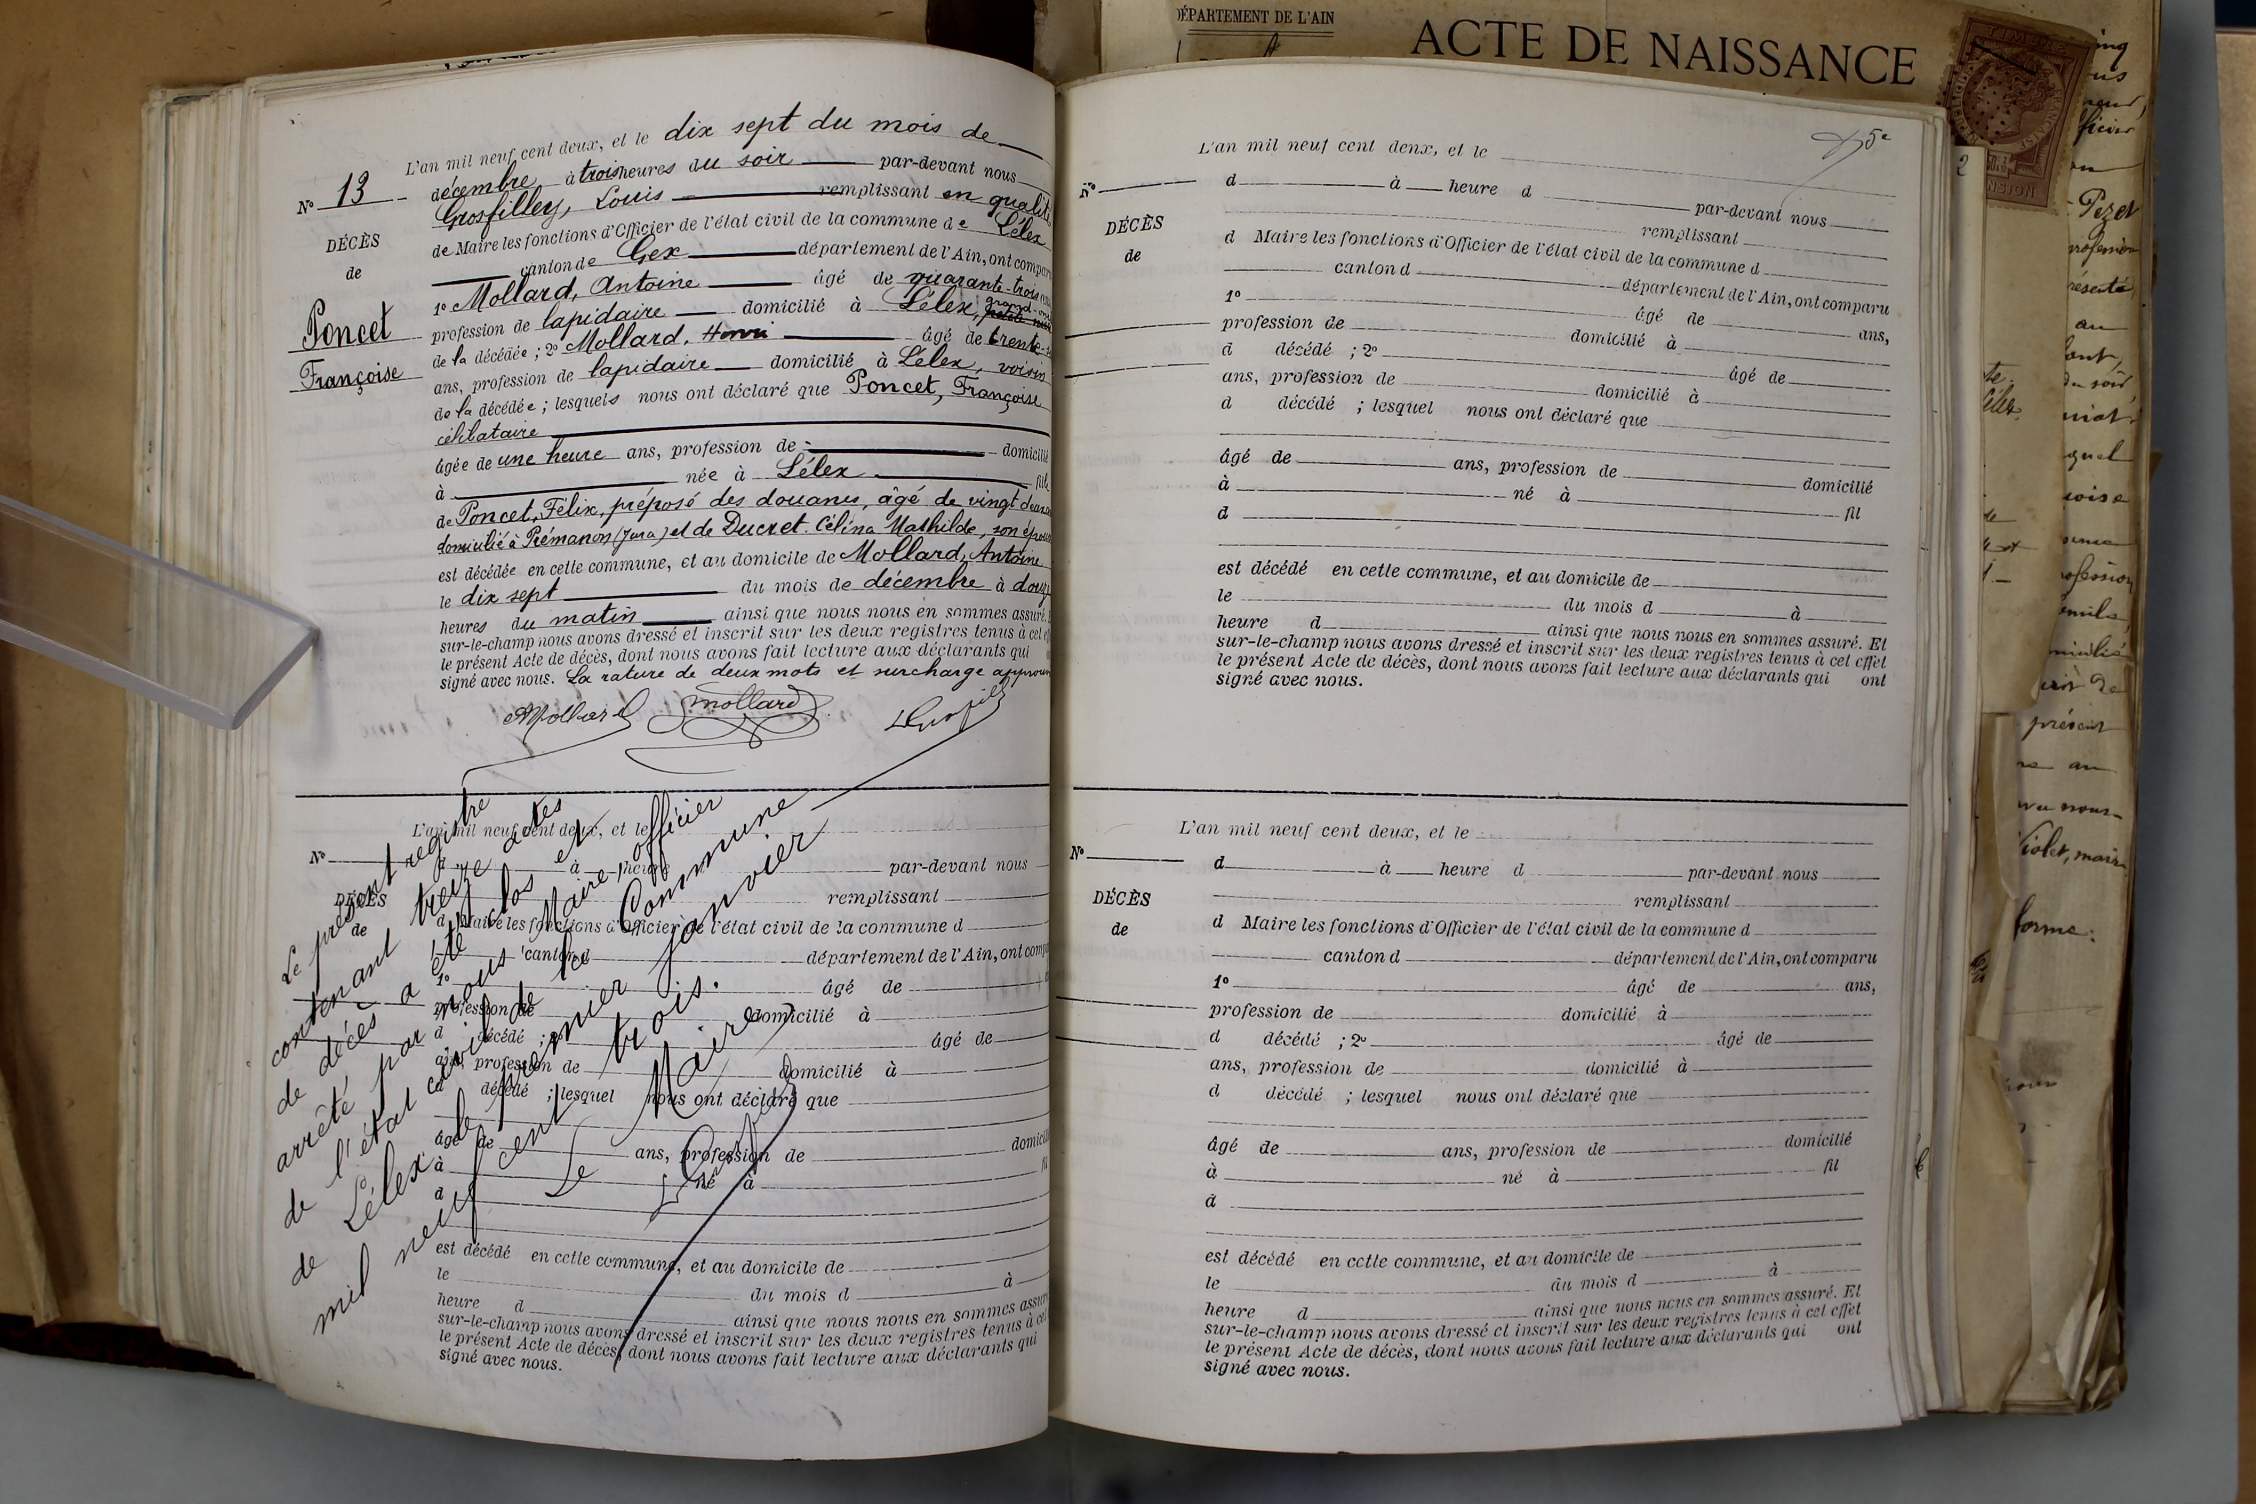 L'an mil neuf cent deux, et le dix sept du mois de
décembre à trois heures du soir par-devant nous
Grosfilley, Louis remplissant en qualité
de Maire les fonctions d'Officier de l'état civil de la commune de Lélex
canton de Gex département de l'Ain, ont compar
1º Mollard, Antoine âgé de quarante-trois
profession de lapidaire domicilié à Lélex, grand-on
de la décédée ; 2º Mollard, Henri âgé de trente-
ans, profession de lapidaire domicilié à Lélex, voisin
de la décédée ; lesquels nous ont déclaré que Poncet, Françoise
célibataire
âgée de une heure ans, profession de domicilié
à née à Lélex fille
de Poncet, Félix, préposé des douanes, âgé de vingt deux
domicilié à Prémanon (Jura) et de Ducret Célina Mathilde, son épouse
est décédée en cette commune, et au domicile de Mollard, Antoine
le dix sept du mois de décembre à douz
heures du matin ainsi que nous nous en sommes assuré. E
sur-le-champ nous avons dressé et inscrit sur les deux registres tenus à cet eff
le présent Acte de décès, dont nous avons fait lecture aux déclarants qui
signé avec nous. La rature de deux mots et surcharge approuv
Nº 13
DÉCÈS
de
Poncet
Françoise
AMollard Mollard LGrosfil
L'an mil neuf cent deux, et le
Nº
à heure par-devant nous
DÉCÈS
remplissant
de
d Maire les fonctions d'Officier de l'état civil de la commune d
canton d département de l'Ain, ont compa
1º âgé de
profession de domicilié à
d décédé ; 2º âgé de
ans, profession de domicilié à
d décédé ; lesquel nous ont déclaré que
âgé de ans, profession de domicili
à né à fil
d
est décédé en cette commune, et au domicile de
le du mois d à
heure d ainsi que nous nous en sommes assuré
sur-le-champ nous avons dressé et inscrit sur les deux registres tenus à cet
le présent Acte de décès, dont nous avons fait lecture aux déclarants qui
signé avec nous.
Le présent registre
contenant treize actes
de décès a été clos et
arrêté par nous Maire, officier
de l'état civil de la Commune
de Lélex le premier janvier
mil neuf cent trois.
Le Maire,
LGrosf
DÉPARTEMENT DE L'AIN
ACTE DE NAISSANCE
TIMBRE
5e
L'an mil neuf cent deux, et le
Nº
d à heure d par-devant nous
DÉCÈS
remplissant
de
d Maire les fonctions d'Officier de l'état civil de la commune d
canton d département de l'Ain, ont comparu
1º âgé de ans,
profession de domicilié à
d décédé ; 2º âgé de
ans, profession de domicilié à
d décédé ; lesquel nous ont déclaré que
âgé de ans, profession de domicilié
à né à fil
d
est décédé en cette commune, et au domicile de
le du mois d à
heure d ainsi que nous nous en sommes assuré. Et
sur-le-champ nous avons dressé et inscrit sur les deux registres tenus à cet effet
le présent Acte de décès, dont nous avons fait lecture aux déclarants qui ont
signé avec nous.
L'an mil neuf cent deux, et le
Nº
d à heure d par-devant nous
DÉCÈS
remplissant
de
d Maire les fonctions d'Officier de l'état civil de la commune d
canton d département de l'Ain, ont comparu
1º âgé de ans,
profession de domicilié à
d décédé ; 2º âgé de
ans, profession de domicilié à
d décédé ; lesquel nous ont déclaré que
âgé de ans, profession de domicilié
à né à fil
d
est décédé en cette commune, et au domicile de
le du mois d à
heure d ainsi que nous nous en sommes assuré. Et
sur-le-champ nous avons dressé et inscrit sur les deux registres tenus à cet effet
le présent Acte de décès, dont nous avons fait lecture aux déclarants qui ont
signé avec nous.
Pezet
profession
au
du soir
quel
présent
au
Violet, maire
forme: